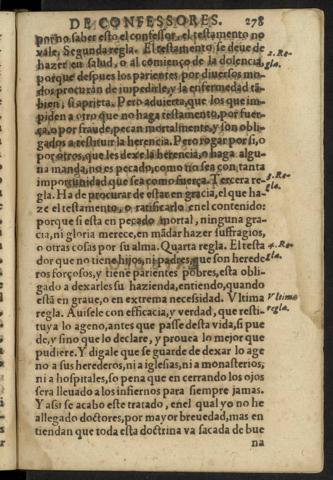 DE CONFESSORES. 278
por no saber esto el confessor, el testamento no
vale, Segunda regla. El testamento se deue de
hazer en salud, o al comienço de la dolencia,
porque despues los parientes por diuersos mo-
dos procuran de impedirle, y la enfermedad tã-
bien, si aprieta. Pero aduierta, que los que im-
piden a otro que no haga testamento, por fuer-
ça, o por fraude, pecan mortalmente, y son obli-
gados a restituir la herencia. Pero rogar por si, o
por otros, que les dexe la herencia, o haga algu-
na manda, no es pecado, como no sea con tanta
importunidad que sea como fuerça. Tercera re-
gla. Ha de procurar de estar en gracia, el que ha-
ze el testamento, o ratificarlo en el contenido:
porque si esta en pecado mortal, ninguna gra-
cia, ni gloria merece, en mãdar hazer suffragios,
o otras cosas por su alma. Quarta regla. El testa
dor que no tiene hijos, ni padres, que son herede
ros forçosos, y tiene parientes pobres, esta obli-
gado a dexarles su hazienda, entiendo, quando
està en graue, o en extrema necessidad. Vltima
regla. Auisele con efficacia, y verdad, que resti-
tuya lo ageno, antes que passe desta vida, si pue
de, y sino que lo declare, y prouea lo mejor que
pudiere. Y digale que se guarde de dexar lo age
no a sus herederos, ni a iglesias, ni a monasterios,
ni a hospitales, so pena que en cerrando los ojos
sera lleuado a los infiernos para siempre jamas.
Y assi se acabo este tratado, enel qual yo no he
allegado doctores, por mayor breuedad, mas en
tiendan que toda esta doctrina va sacada de bue
na
2. Re-
gla.
3. Re-
gla.
4. Re-
gla.
Vltima
regla.